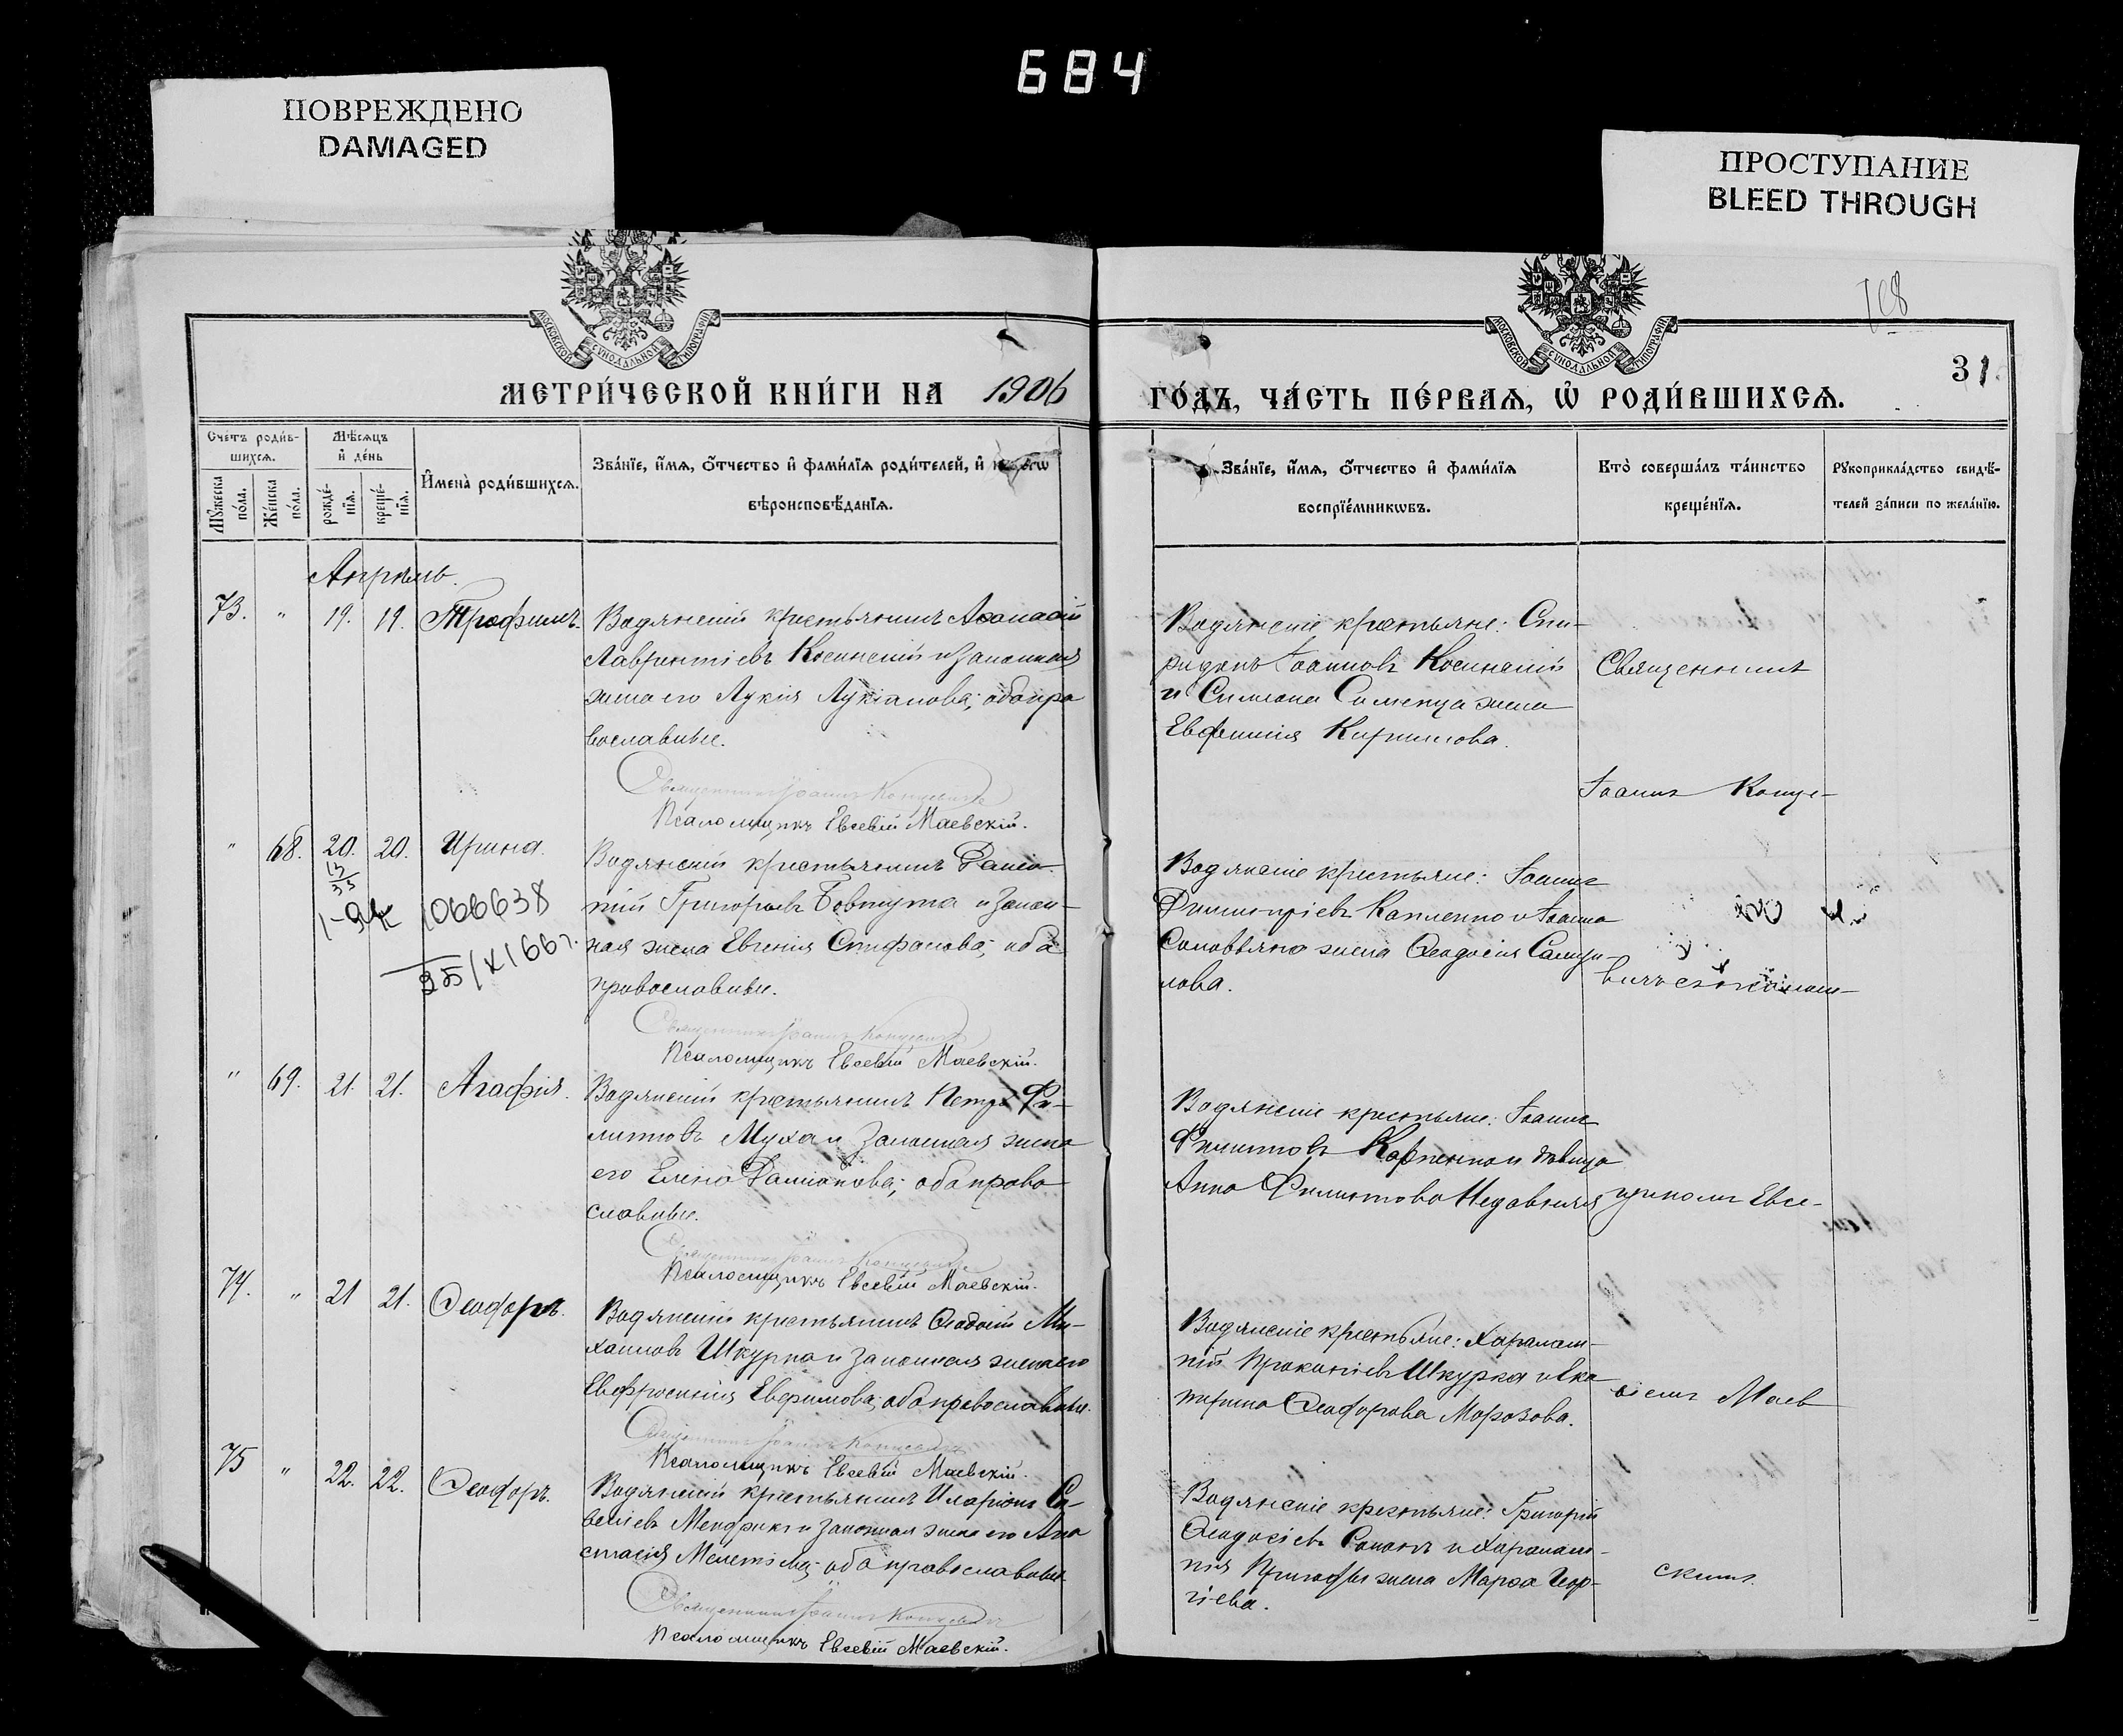 684
ПОВРЕЖДЕНО
DAMAGED
ПРОСТУПАНИЕ
BLEED THROUGH
МОСКОВСКОЙ СѴНОДАЛЬНОЙ ТИПОГРАФІИ
МОСКОВСКОЙ СѴНОДАЛЬНОЙ ТИПОГРАФІИ
31
МЕТРИ́ЧЕСКОЙ КНИ́ГИ НА 1906
ГО́ДЪ, ЧА́СТЬ ПЕ́РВАѦ, Ѡ РОДИ́ВШИХСѦ.
Сче́тъ роди́в-
шихсѧ.
Мꙋ́жеска
по́ла.
Же́нска
по́ла.
Мѣ́сѧцъ
и҆ де́нь
рожде́-
нїѧ.
креще́-
нїѧ.
И҆мена̀ роди́вшихсѧ.
Зва́нїе, и҆́мѧ, ѻ҆́тчество и҆ фами́лїѧ роди́телей, и҆
вѣроисповѣ́данїѧ.
Зва́нїе, и҆́мѧ, ѻ҆́тчество и҆ фами́лїѧ
воспрїе́мникѡвъ.
Кто̀ соверша́лъ та́инство
креще́нїѧ.
Рꙋкоприкла́дство свидѣ́-
телей за́писи по жела́нїю.
Апрѣль.
73. " 19. 19. Трофимъ.
Водянскій крестьянинъ Аѳанасій
Лаврентіевъ Косинскій и законная
жена его Лукія Лукіанова; оба пра
вославные.
Священникъ Іоаннъ Концевичъ
Псаломщикъ Евсевій Маевскій.
Водянскіе крестьяне: Спи-
ридонъ Іоанновъ Косинскій
и Симеона жена
Евфимія Кириллова.
Священникъ
Іоаннъ Конце-
" 68. 20. 20. Ирина.
1066638
Водянскій крестьянинъ
Григорьевъ Товпуга и закон-
ная жена Евгенія Стефанова; оба
православные.
Священникъ Іоаннъ Концевичъ
Псаломщикъ Евсевій Маевскій.
Водянскіе крестьяне: Іоаннъ
Димитріевъ Капленко и Іоанна
жена Ѳеодосія Самуи-
лова.
" 69. 21. 21. Агафія.
Водянскій крестьянинъ Петръ Фи-
липповъ Муха и законная жена
его Елена Даміанова; оба право
славные.
Священникъ Іоаннъ Концевичъ
Псаломщикъ Евсевій Маевскій.
Водянскіе крестьяне: Іоаннъ
Филипповъ Карпенко и дѣвица
Анна Филиппова
Евсе-
74. " 21 21. Ѳеодоръ.
Водянскій крестьянинъ Ми-
хаиловъ Шкурка и законная жена его
Евфросинія Евфимова; оба православные.
Священникъ Іоаннъ Концевичъ
Псаломщикъ Евсевій Маевскій.
Водянскіе крестьяне: Харалам-
пій Прокопіевъ Шкурка и Ека
терина Ѳеодорова Морозова.
віемъ Маев
75 " 22. 22. Ѳеодоръ.
Водянскій крестьянинъ Иларіонъ Са-
веліевъ и законная жена его Ана
стасія Мелетіева; оба православные.
Священникъ Іоаннъ Концевичъ
Псаломщикъ Евсевій Маевскій.
Водянскіе крестьяне: Григорій
Ѳеодосіевъ и Харалам-
пія жена Марѳа Геор-
гіева.
скимъ.